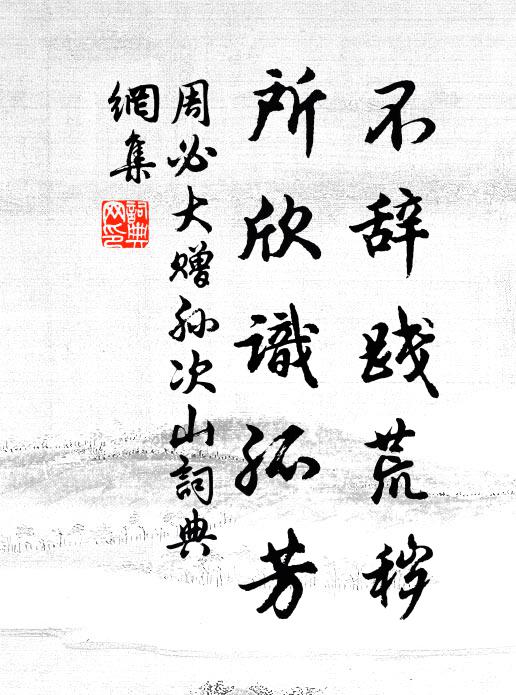 不辞践荒秽
所欣識孤芳
周必大赠孙次山詞典
網集
詞典
网印